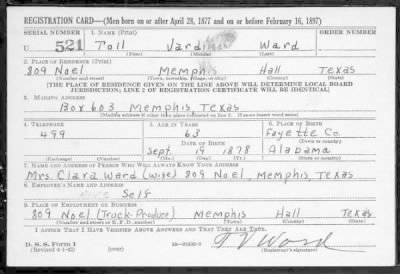 REGISTRATION CARD—(Men born on or after April 28, 1877 and on or before February 16, 1897)
SERIAL NUMBER 1. NAME (Print) ORDER NUMBER
U 521 Toll Ward
(First) (Middle) (Last)
2. PLACE OF RESIDENCE (Print)
809 Noel Memphis Hall Texas
(Number and street) (Town, township, village, or city) (County) (State)
[THE PLACE OF RESIDENCE GIVEN ON THE LINE ABOVE WILL DETERMINE LOCAL BOARD
JURISDICTION; LINE 2 OF REGISTRATION CERTIFICATE WILL BE IDENTICAL]
3. MAILING ADDRESS
Box 603 Memphis Texas
[Mailing address if other than place indicated on line 2. If same insert word same]
4. TELEPHONE 5. AGE IN YEARS 6. PLACE OF BIRTH
499 63 Fayette Co.
DATE OF BIRTH (Town or county)
Sept. 19 1878 Alabama
(Exchange) (Number) (Mo.) (Day) (Yr.) (State or country)
7. NAME AND ADDRESS OF PERSON WHO WILL ALWAYS KNOW YOUR ADDRESS
Mrs. Clara Ward (wife) 809 Noel, Memphis, Texas
8. EMPLOYER'S NAME AND ADDRESS
Self
9. PLACE OF EMPLOYMENT OR BUSINESS
809 Noel (Truck-Produce) Memphis Hall Texas
(Number and street or R. F. D. number) (Town) (County) (State)
I AFFIRM THAT I HAVE VERIFIED ABOVE ANSWERS AND THAT THEY ARE TRUE.
D. S. S. Form 1 T V Ward
(Revised 4-1-42) (Registrant's signature)